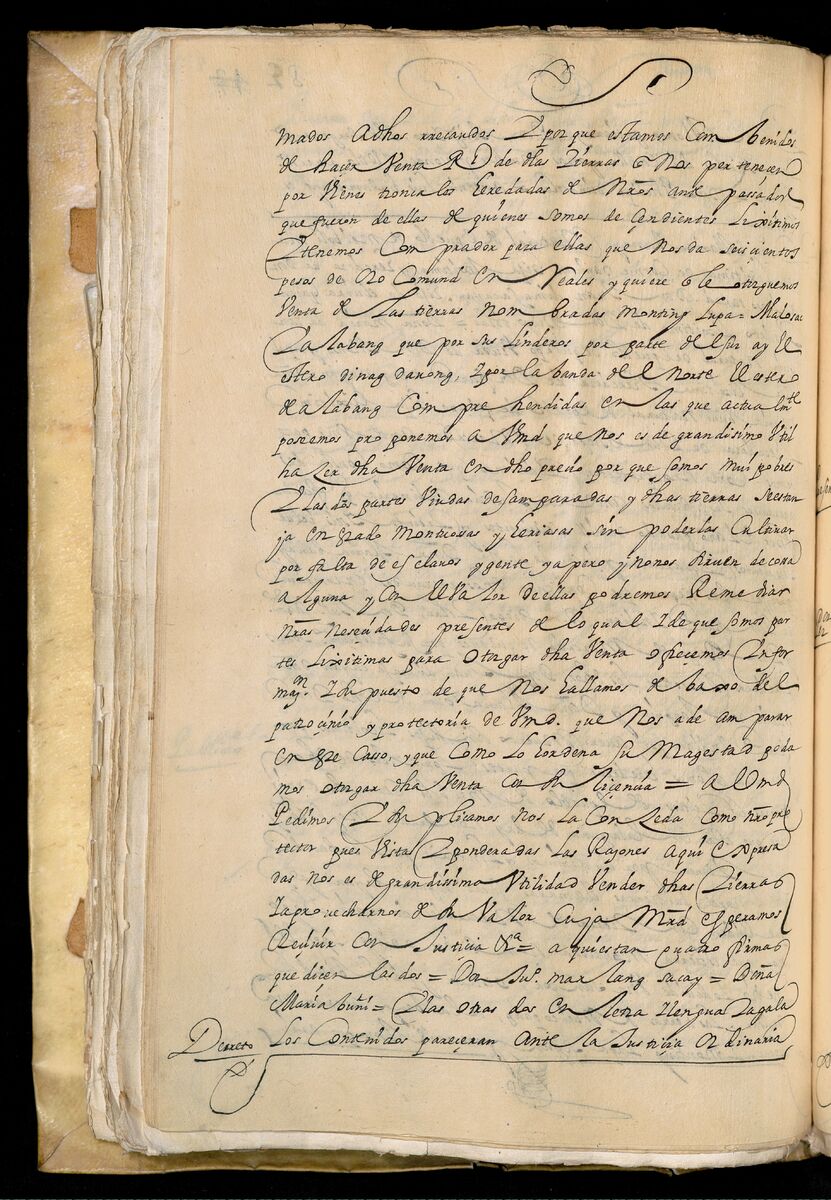 mados adhos rrecaudos Y porque estamos Combenidos
de hacer Venta Rl de dhas tierras q Nos pertenecen
por Vienes tronicales heredadas de Nros antepassados
que fueron de ellas de quienes somos decendientes Lixitimos
Y tenemos Comprador para ellas que nos da seicientos
pesos de oro Comun en Reales y quiere q le otorguemos
Venta de las tierras nombradas monting Lupa = Malosac
Y alabang que por sus linderos por parte del sur ay El
estero dinag daxong, Y por la banda del norte El estero
de alabang Comprehendidas en las que actualmte
poseemos proponemos a Vmd que nos es de grandisimo Vtil
hazer dha Venta en dho precio por que somos mui pobres
Y las dos partes Viudas desamparadas y dhas tierras se estan
ja en grado montuosas y heriasas sin poderlas Cultivar
por falta de esclavos y gente y apero y no nos sirven de cosa
alguna y con El Valor de ellas podremos Remediar
nras nesecidades presentes de lo qual Y de que somos par
tes Lixitimas para otorgar dha Venta ofrecemos Infor
maon. Y supuesto de que Nos hallamos debaxo del
patrocinio y protectoria de Vmd. que Nos a de amparar
en este Casso, y que Como lo hordena su Magestad poda
mos otorgar dha Venta con su licencia = A Vmd
Pedimos Y suplicamos nos la Conzeda como nro pro
tector pues Vistas Y ponderadas las Razones aqui expresa
das nos es de grandissima Vtilidad Vender dhas tierras
Y aprovecharnos de su Valor Cuja Mrd esperamos
Recivir con Justicia Xa = aqui estan quatro firmas
que dicen las dos = Don Jua. max lang sacay = Doña
Maria buñi = Y las otras dos en letra Y lengua tagala
Decreto Los Contenidos pareceran ante la Justicia ordinaria